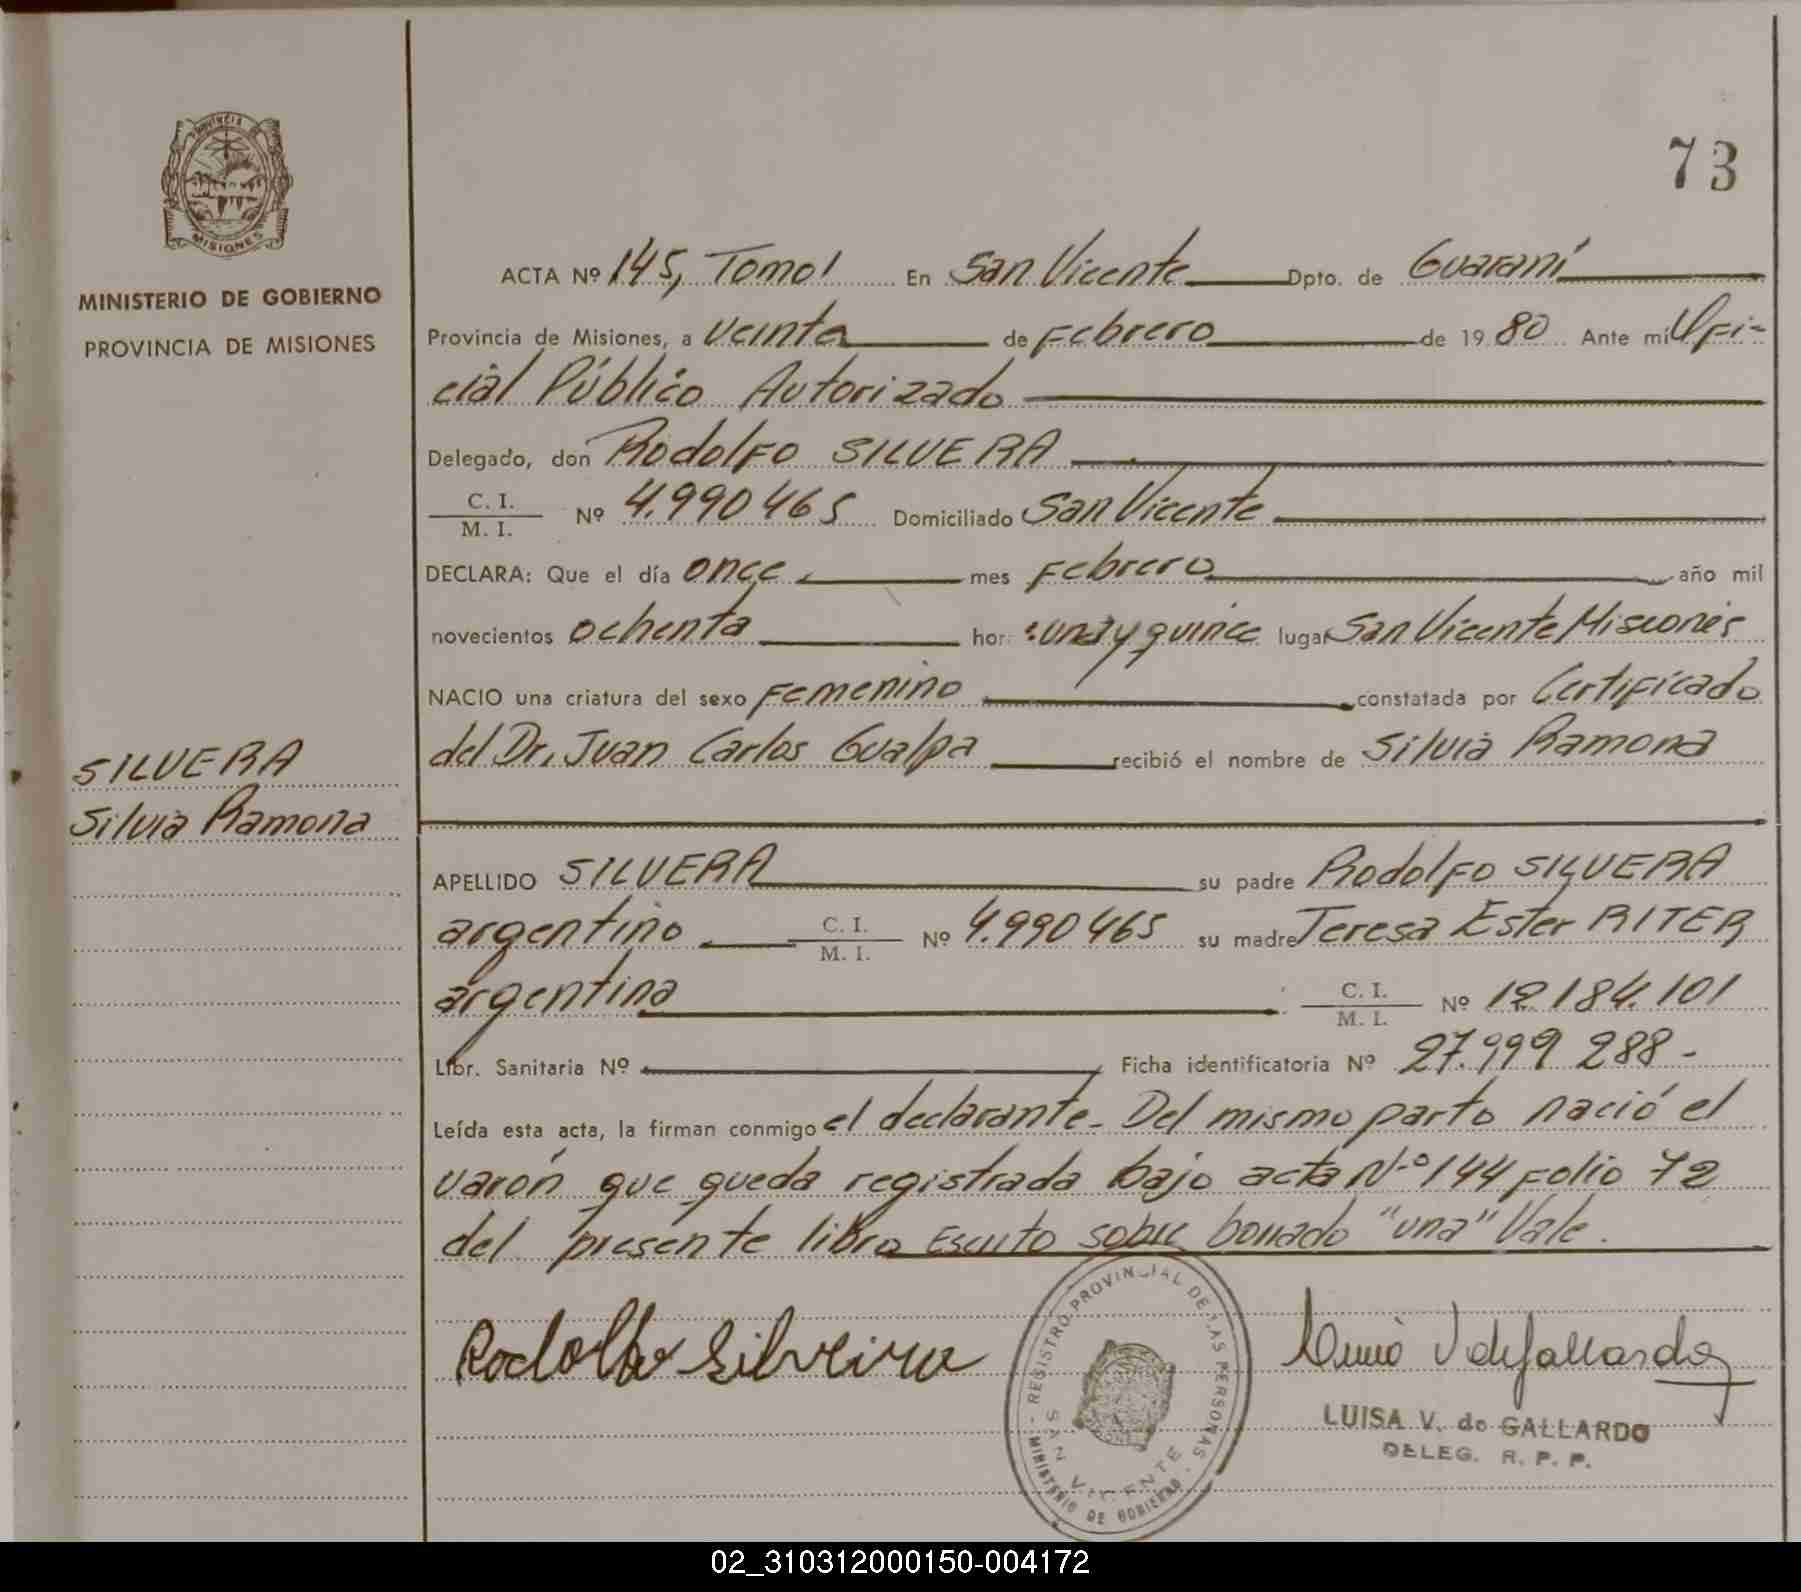 73
PROVINCIA DE
MISIONES
MINISTERIO DE GOBIERNO
PROVINCIA DE MISIONES
ACTA Nº 145, Tomo I En San Vicente Dpto. de Guaraní
Provincia de Misiones, a veinte de Febrero de 19 80 Ante mí Ofi-
cial Público Autorizado
Delegado, don Rodolfo SILVERA
C. I.
M. I. Nº 4.990465 Domiciliado San Vicente
DECLARA: Que el día once mes Febrero año mil
novecientos ochenta hor: una y quince lugar San Vicente Misiones
NACIO una criatura del sexo Femenino constatada por Certificado
del Dr. Juan Carlos Gualpa recibió el nombre de Silvia Ramona
SILVERA
Silvia Ramona
APELLIDO SILVERA su padre Rodolfo SILVERA
argentino C. I. M. I. Nº 4.990465 su madre Teresa Ester RITER
argentina C. I. M. I. Nº 184.101
Libr. Sanitaria Nº Ficha identificatoria Nº 27.999 288-
Leída esta acta, la firman conmigo el declarante- Del mismo parto nació el
varón que queda registrada bajo acta Nº 144 Folio 72
del presente libro Escrito sobre borrado "una" Vale.
Rodolfo Silveira
REGISTRO PROVINCIAL DE LAS PERSONAS
SAN VICENTE
MINISTERIO DE GOBIERNO
LUISA V. de GALLARDO
DELEG. R. P. P.
02_310312000150-004172